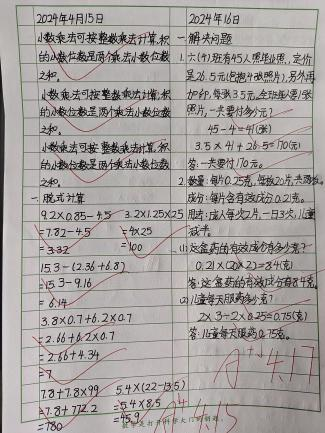 2024年4月15日
小数乘法可按整数乘法计算,积
的小数位数是两个乘法小数位数
之和。
小数乘法可按整数乘法计算,积
的小数位是两个乘法小数位数
之和。
小数乘法可按整数乘法计算,积
的小数位数是两个乘法小数位数
之和。
一.脱式计算
9.2×0.85-4.5
=7.82-4.5
=3.32
3.2×1.25×25
=4×25
=100
15.3-(2.36+6.8)
=15.3-9.16
=6.14
3.8×0.7+6.2×0.7
=2.66+6.2×0.7
=2.66+4.34
=7
7.8+7.8×99
=7.8+772.2
=780
5.4×(22-13.5)
=5.4×8.5
=45.9
2024年16日
一解决问题
1.六(4)班有45人照毕业照,定价
是26.5元(包括4张照片),另外再
加印,每张3.5元。全班每人要1张
照片,一共要付多少元?
45-4=41(张)
3.5×41+26.5=170(元)
答:一共要付170元。
2.数量:每片0.25克,每板20片,共两板。
成份:每片含有效成分0.21克。
用法:成人每次2片,一日3次,儿童
减半。
(1)这盒药的有效成分有多少克?
0.21×(20×2)=8.4(克)
答:这盒药的有效成分有8.4克。
(2)儿童每天服药多少克?
2×3÷2×0.25=0.75(克)
答:儿童每天服药0.75克。
4.17
4.15
数学是打开科学大门的钥匙。